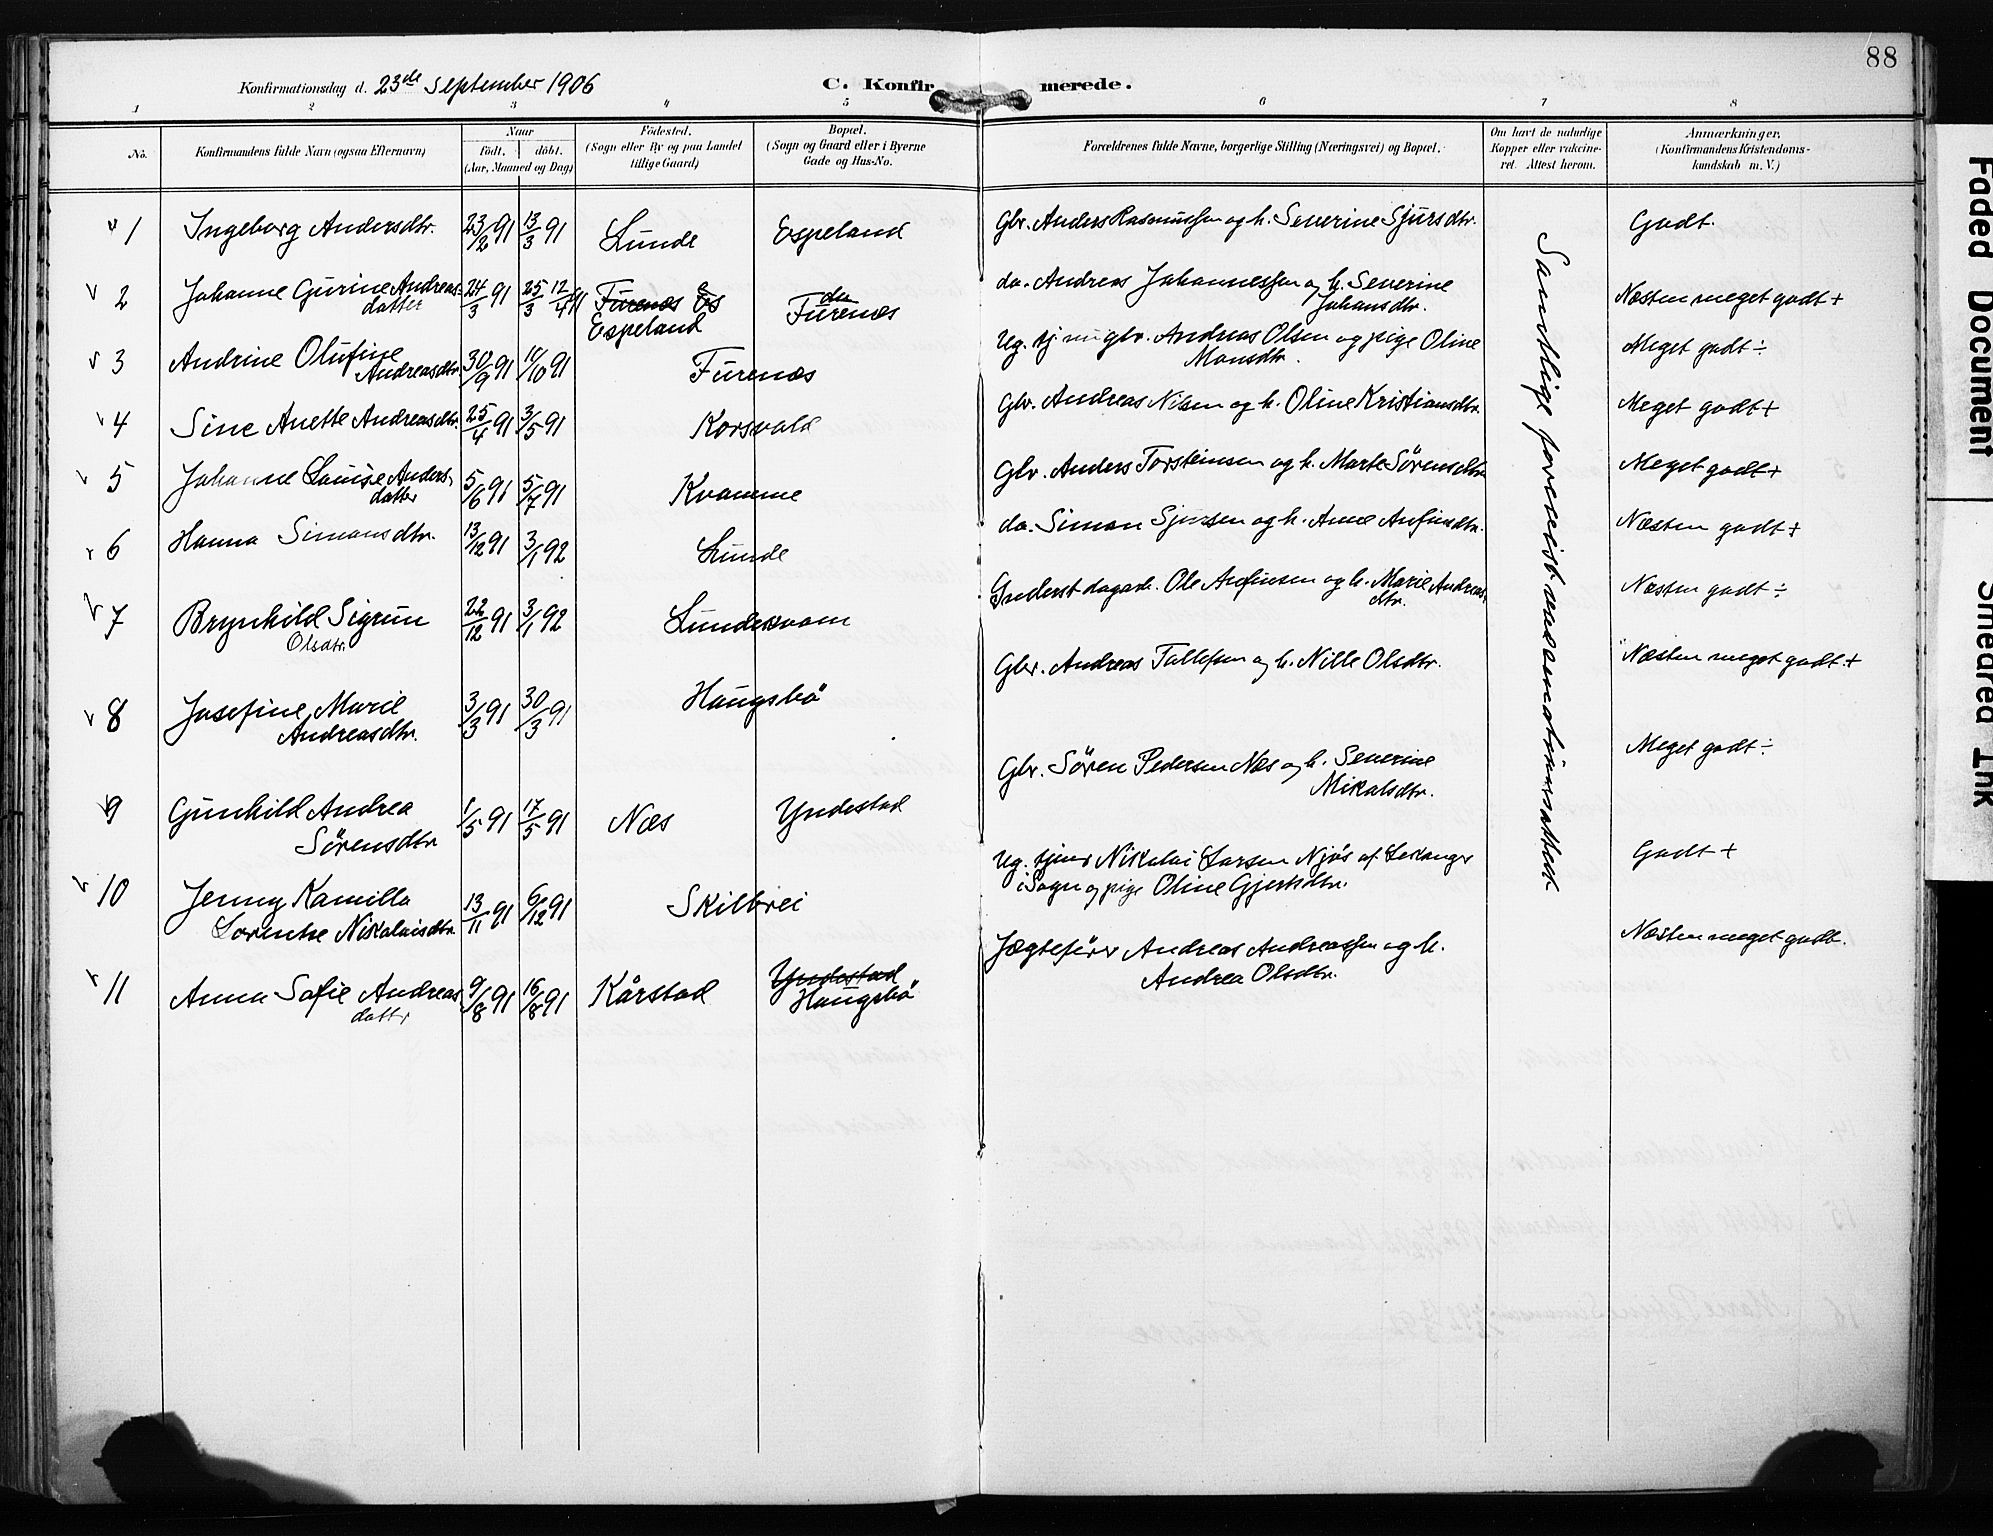 88
Konfirmationsdag d. 23de September 1906 C. Konfirmerede.
1 2 3 4 5 6 7 8
No. Konfirmandens fulde Navn (ogsaa Efternavn) Naar Födt. döbt. (Aar, Maaned og Dag) Födested. (Sogn eller By og paa Landet tillige Gaard) Bopæl. (Sogn og Gaard eller i Byerne Gade og Hus-No. Forældrenes fulde Navne, borgerlige Stilling (Næringsvei) og Bopæl. Om havt de naturlige Kopper eller vakcineret. Attest herom. Anmærkninger. (Konfirmandens Kristendomskundskab m. V.)
1 Ingeborg Andersdtr. 23/2 91 13/3 91 Lunde Espeland Gbr. Anders Rasmussen og h. Severine Sjursdtr. Godt.
2 Johanne Gurine Andreas- 24/3 91 25/3 12/4 91 Furenæs Es do da. Andreas Johannessen og h. Severine Næsten meget godt +
datter Espeland Furenæs Johansdtr.
3 Andrine Olufine 30/9 91 11/10 91 Furenæs Ug. tj. nu gbr. Andreas Olsen og pige Oline Meget godt ÷
Andreasdtr. Monsdtr.
4 Sine Anette Andreasdtr. 25/4 91 3/5 91 Korsvold Gbr. Andreas Nilsen og h. Oline Kristiansdtr. Meget godt +
5 Johanne Louise Anders- 5/6 91 5/7 91 Kvamme Gbr. Anders Torsteinsen og h. Marte Sörensdtr. Meget godt +
datter
6 Hanna Simonsdtr. 13/12 91 3/1 92 Lunde do. Simon Sjursen og h. Anne Anfinsdtr. Næsten godt +
7 Brynhild Sigrun 22/12 91 3/1 92 Lundekvam Inderst dagarb. Ole Anfinsen og h. Marie Andreas- Næsten godt ÷
Olsdtr. dtr.
8 Josefine Marie 3/3 91 30/3 91 Haugsbö Gbr. Andreas Tollefsen og h. Nille Olsdtr. Næsten meget godt +
Andreasdtr.
9 Gunhild Andrea 1/5 91 17/5 91 Næs Yndestad Gbr. Sören Pedersen Næs og h. Severine Meget godt ÷
Sörensdtr. Mikalsdtr.
10 Jenny Kamilla 13/11 91 6/12 91 Skilbrei Ug. tjener Nikolai Larsen Njøs af Leikanger Godt +
Lorentse Nikolaisdtr. i Sogn og pige Oline Gjertsdtr.
11 Anna Sofie Andreas 9/8 91 16/8 91 Kårstad Yndestad Jægtefører Andreas Andreassen og h. Næsten meget godt.
datter Haugsbö Andrea Olsdtr.
Samtlige forevist vaccinationsattest
Faded Document
Smeared Ink